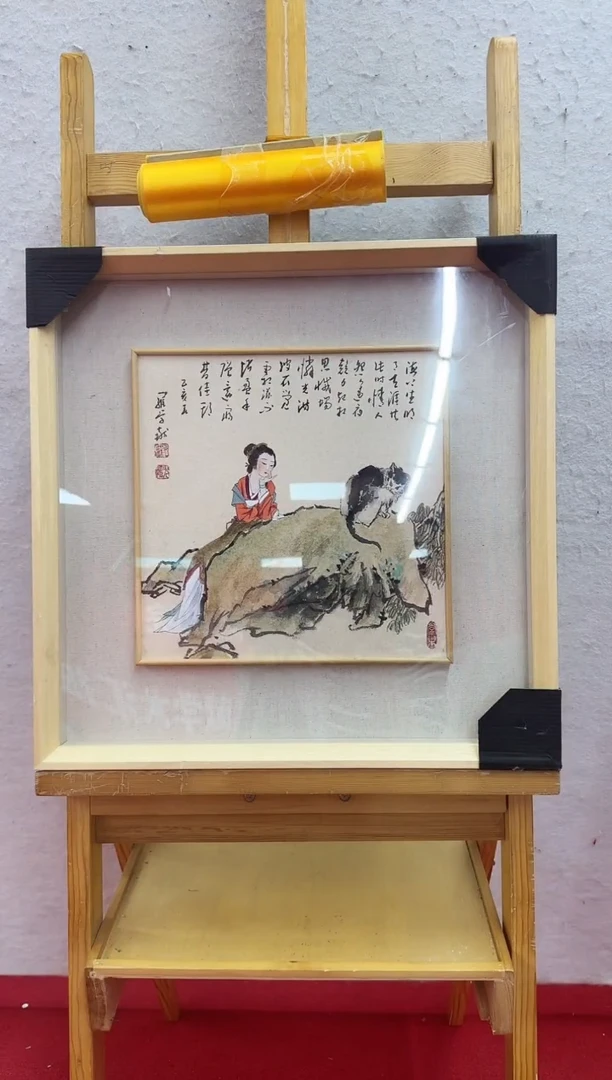 海上生明
月天涯共
此时情人
怨遥夜
竟夕起相
思滅燭
憐光满
披衣觉
露滋不
堪盈手
贈還寝
梦佳期
乙亥夏